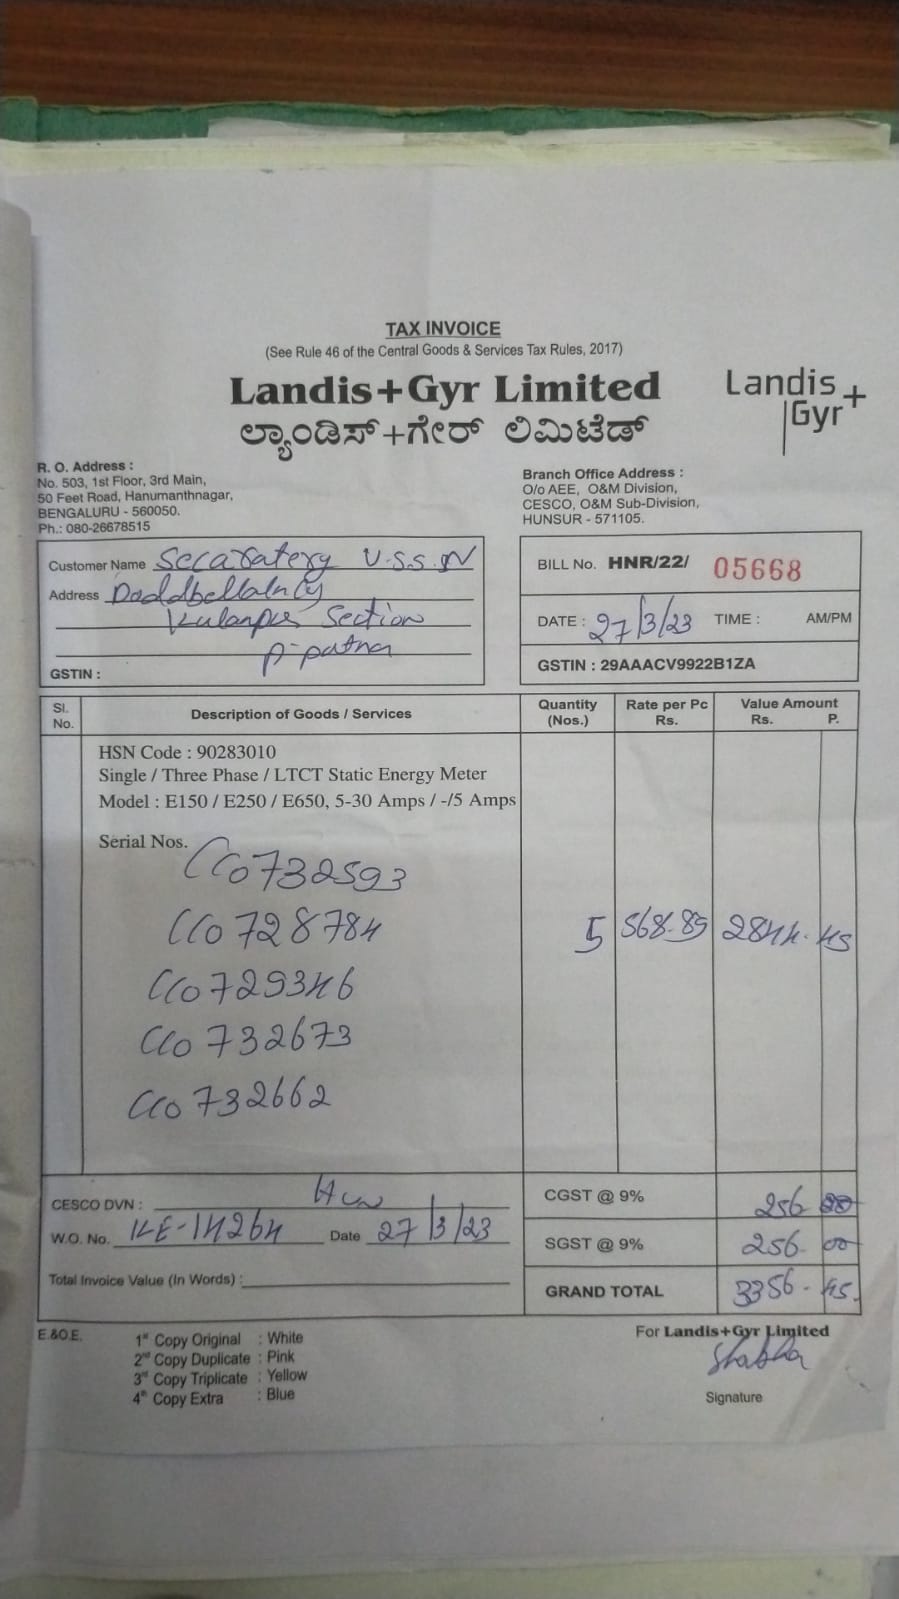 TAX INVOICE
(See Rule 46 of the Central Goods & Services Tax Rules, 2017)
Landis+Gyr Limited
ಲ್ಯಾಂಡಿಸ್+ಗೇರ್ ಲಿಮಿಟೆಡ್
Landis
Gyr+
R. O. Address :
No. 503, 1st Floor, 3rd Main,
50 Feet Road, Hanumanthnagar,
BENGALURU - 560050.
Ph.: 080-26678515
Branch Office Address :
O/o AEE, O&M Division,
CESCO, O&M Sub-Division,
HUNSUR - 571105.
Customer Name U.S.S.N
Address
Section
GSTIN :
BILL No. HNR/22/ 05668
DATE : 27/3/23 TIME : AM/PM
GSTIN : 29AAACV9922B1ZA
Sl. No. Description of Goods / Services Quantity (Nos.) Rate per Pc Rs. Value Amount Rs. P.
HSN Code : 90283010
Single / Three Phase / LTCT Static Energy Meter
Model : E150 / E250 / E650, 5-30 Amps / -/5 Amps
Serial Nos.
CC0732593
CC0728784 5 568.89 2844. 45
CC0729346
CC0732673
CC0732662
CESCO DVN :
W.O. No. KE-14264 Date 27/3/23
Total Invoice Value (In Words) :
CGST @ 9% 256
SGST @ 9% 256. 00
GRAND TOTAL 3356. 45.
E.&O.E.
1st Copy Original : White
2nd Copy Duplicate : Pink
3rd Copy Triplicate : Yellow
4th Copy Extra : Blue
For Landis+Gyr Limited
Signature